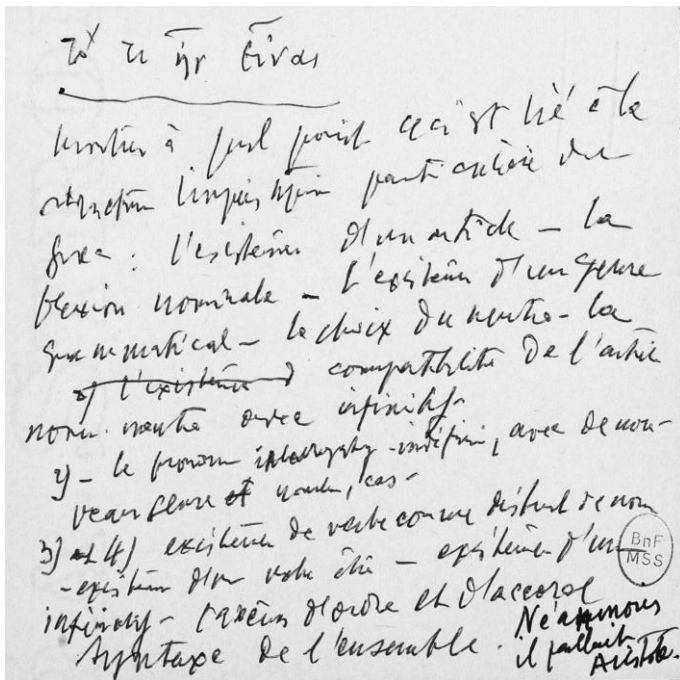 τὸ τι ἦν εἶναι
montrer à quel point ceci est lié à la
structure linguistique particulière du
grec : l'existence d'un article – la
flexion nominale – l'existence d'un genre
grammatical – le choix du neutre – la
2) l'existence compatibilité de l'article
nom. neutre avec infinitif –
2) – le pronom interrogatif-indéfini, avec de nou-
veau genre et nombre, cas –
3) et 4) existence de verbe comme distinct de nom
– existence d'un verbe être – existence d'un
infinitif – d'ordre et d'accord
syntaxe de l'ensemble. Néanmoins
il fallait
Aristote.
BnF
MSS